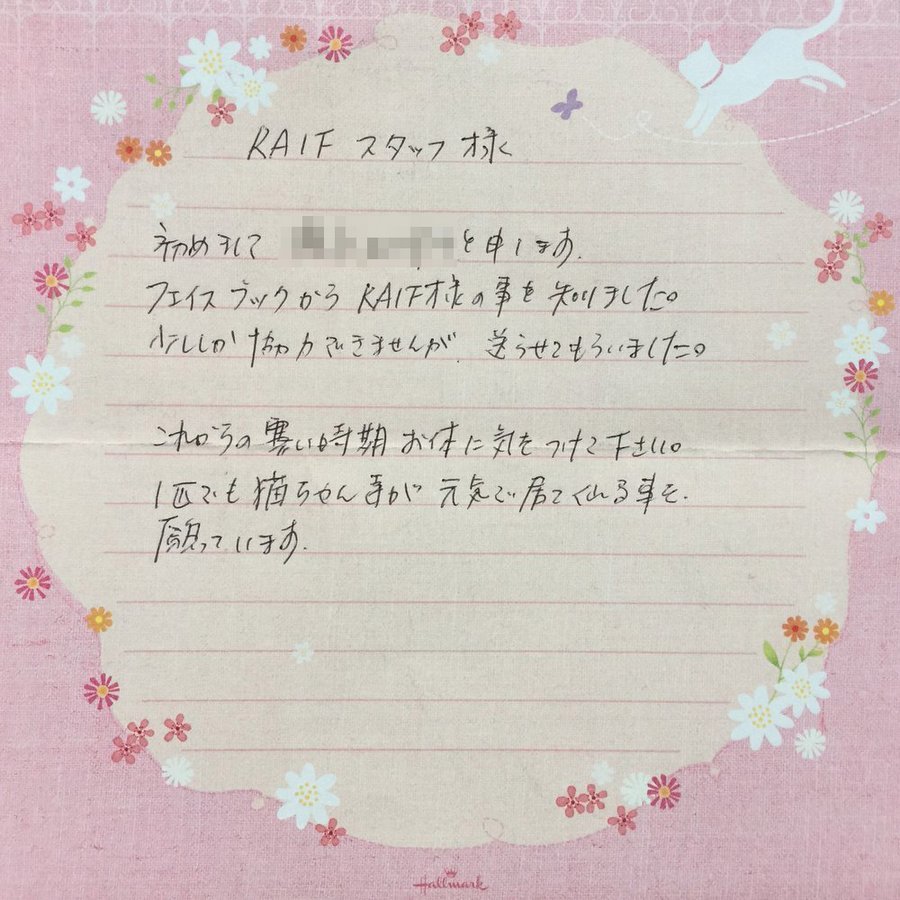 RAIF スタッフ 様
初めまして と申します。
フェイスブックから RAIF様の事を知りました。
少ししか協力できませんが、送らせてもらいました。
これからの寒い時期 お体に気をつけて下さい。
1匹でも猫ちゃん達が 元気で居てくれる事を、
願っています。
Hallmark